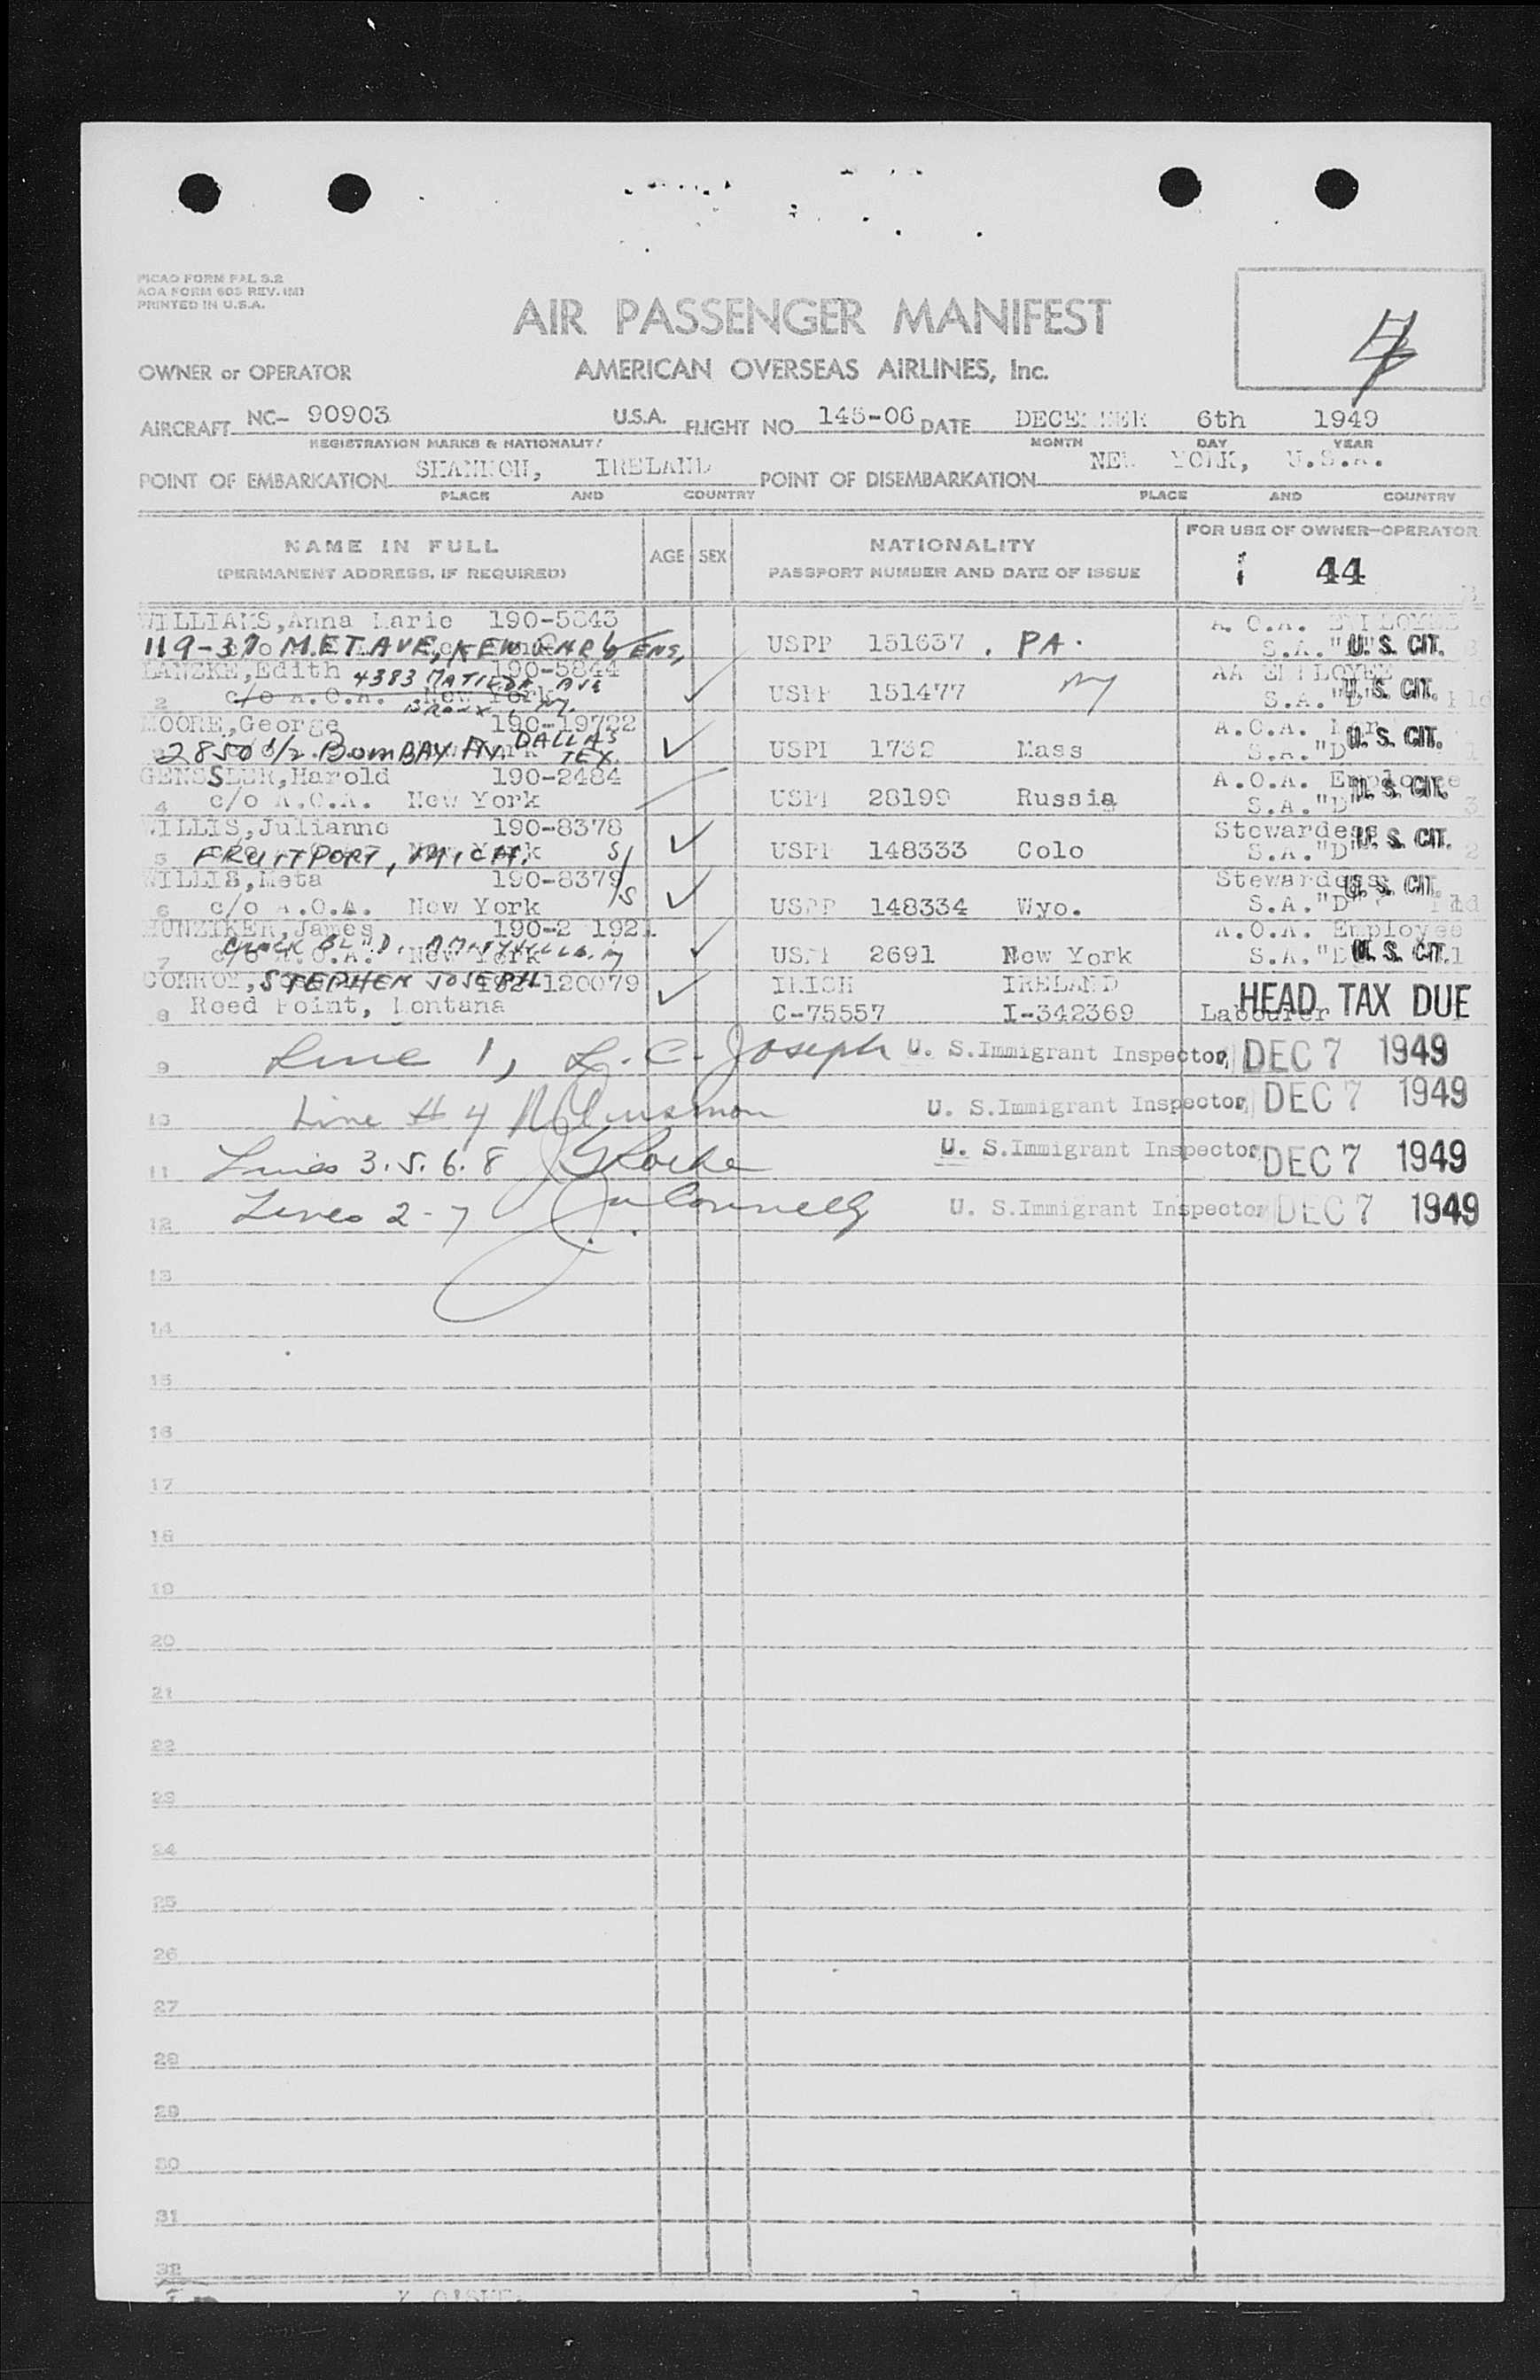 PICAO FORM PAL S.2
AOA FORM 605 REV. (M)
PRINTED IN U.S.A.
AIR PASSENGER MANIFEST
4
OWNER or OPERATOR AMERICAN OVERSEAS AIRLINES, Inc.
AIRCRAFT NC- 90903 U.S.A. FLIGHT NO. 145-06 DATE DECEMBER 6th 1949
REGISTRATION MARKS & NATIONALITY MONTH DAY YEAR
POINT OF EMBARKATION SHANNON, IRELAND POINT OF DISEMBARKATION NEW YORK, U.S.A.
PLACE AND COUNTRY PLACE AND COUNTRY
NAME IN FULL AGE SEX NATIONALITY FOR USE OF OWNER-OPERATOR
(PERMANENT ADDRESS, IF REQUIRED) PASSPORT NUMBER AND DATE OF ISSUE 44
WILLIAMS, Anna Marie 190-5843 A.O.A. EMPLOYEE
119-37 MET AVE, KEW GARDENS, USPP 151637 . PA. S.A."D" U.S. CIT.
LANZKE, Edith 190-5844 AA EMPLOYEE
4383 MATILDA AVE
2 c/o A.O.A. New York USPP 151477 NY S.A."D" U.S. CIT.
BRONX, NY.
MOORE, George 190-19722 A.O.A.
2850 1/2 BOMBAY AV. DALLAS TEX. USPP 1732 Mass S.A."D" U.S. CIT. 1
GENSSLER, Harold 190-2484 A.O.A. Employee
4 c/o A.O.A. New York USPP 28199 Russia S.A."D" U.S. CIT. 3
WILLIS, Julianne 190-8378 Stewardess
5 FRUITPORT, MICH. S/ USPP 148333 Colo S.A."D" U.S. CIT. 2
WILLIS, Meta 190-8379 Stewardess
6 c/o A.O.A. New York /S USPP 148334 Wyo. S.A."D" U.S. CIT.
HUNZIKER, James 190-2 192 A.O.A. Employee
7 c/o A.O.A. New York AMITYVILLE. NY USPP 2691 New York S.A."D" U.S. CIT. 1
CONROY, STEPHEN JOSEPH 182-120079 IRISH IRELAND HEAD TAX DUE
8 Reed Point, Montana C-75557 I-342369 Labourer
9 Line 1, L. C. Joseph U. S.Immigrant Inspector DEC 7 1949
10 Line # 4 U. S.Immigrant Inspector DEC 7 1949
11 Lines 3. 5. 6. 8 U. S.Immigrant Inspector DEC 7 1949
12 Lines 2-7 U. S.Immigrant Inspector DEC 7 1949
13
14
15
16
17
18
19
20
21
22
23
24
25
26
27
28
29
30
31
32